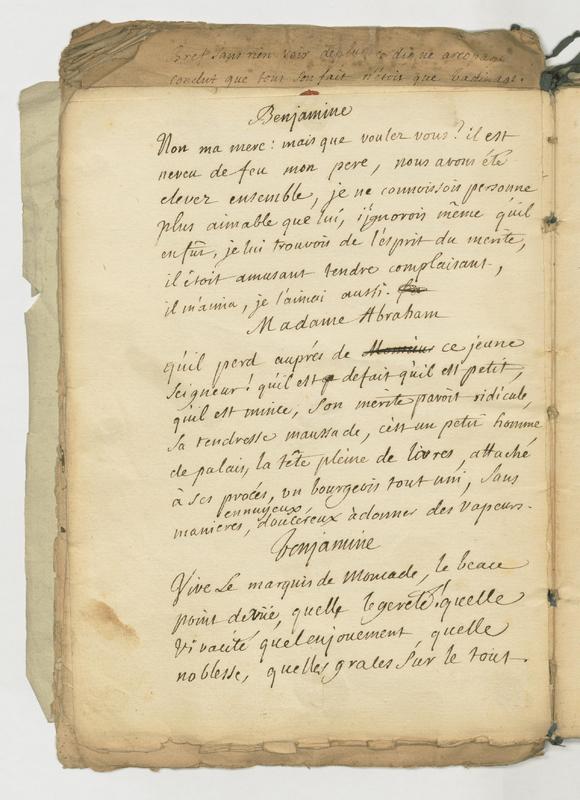 bref sans rien voir de plus ce digne areopage
conclut que tout son fait n'étoit que badinage.
Benjamine
Non ma mere: mais que voulez vous? il est
neveu de feu mon pere, nous avons été
elevez ensemble, je ne connoissois personne
plus aimable que lui, j'ignorois même qu'il
en fût, je lui trouvois de l'esprit du merite,
il étoit amusant tendre complaisant,
il m'aima, je l'aimai aussi.
Madame Abraham
qu'il perd auprés de Monsieur ce jeune
seigneur! qu'il est defait qu'il est petit,
qu'il est mince, son mérite paroît ridicule,
sa tendresse maussade, c'est un petit homme
de palais, la tête pleine de livres, attaché
à ses procés, un bourgeois tout uni, sans
manieres, ennuyeux, doucereux à donner des vapeurs.
Benjamine
Vive Le marquis de Moncade, le beau
point de vüe, quelle legereté! quelle
vivacité quel enjouement quelle
noblesse, quelles graces sur le tout.